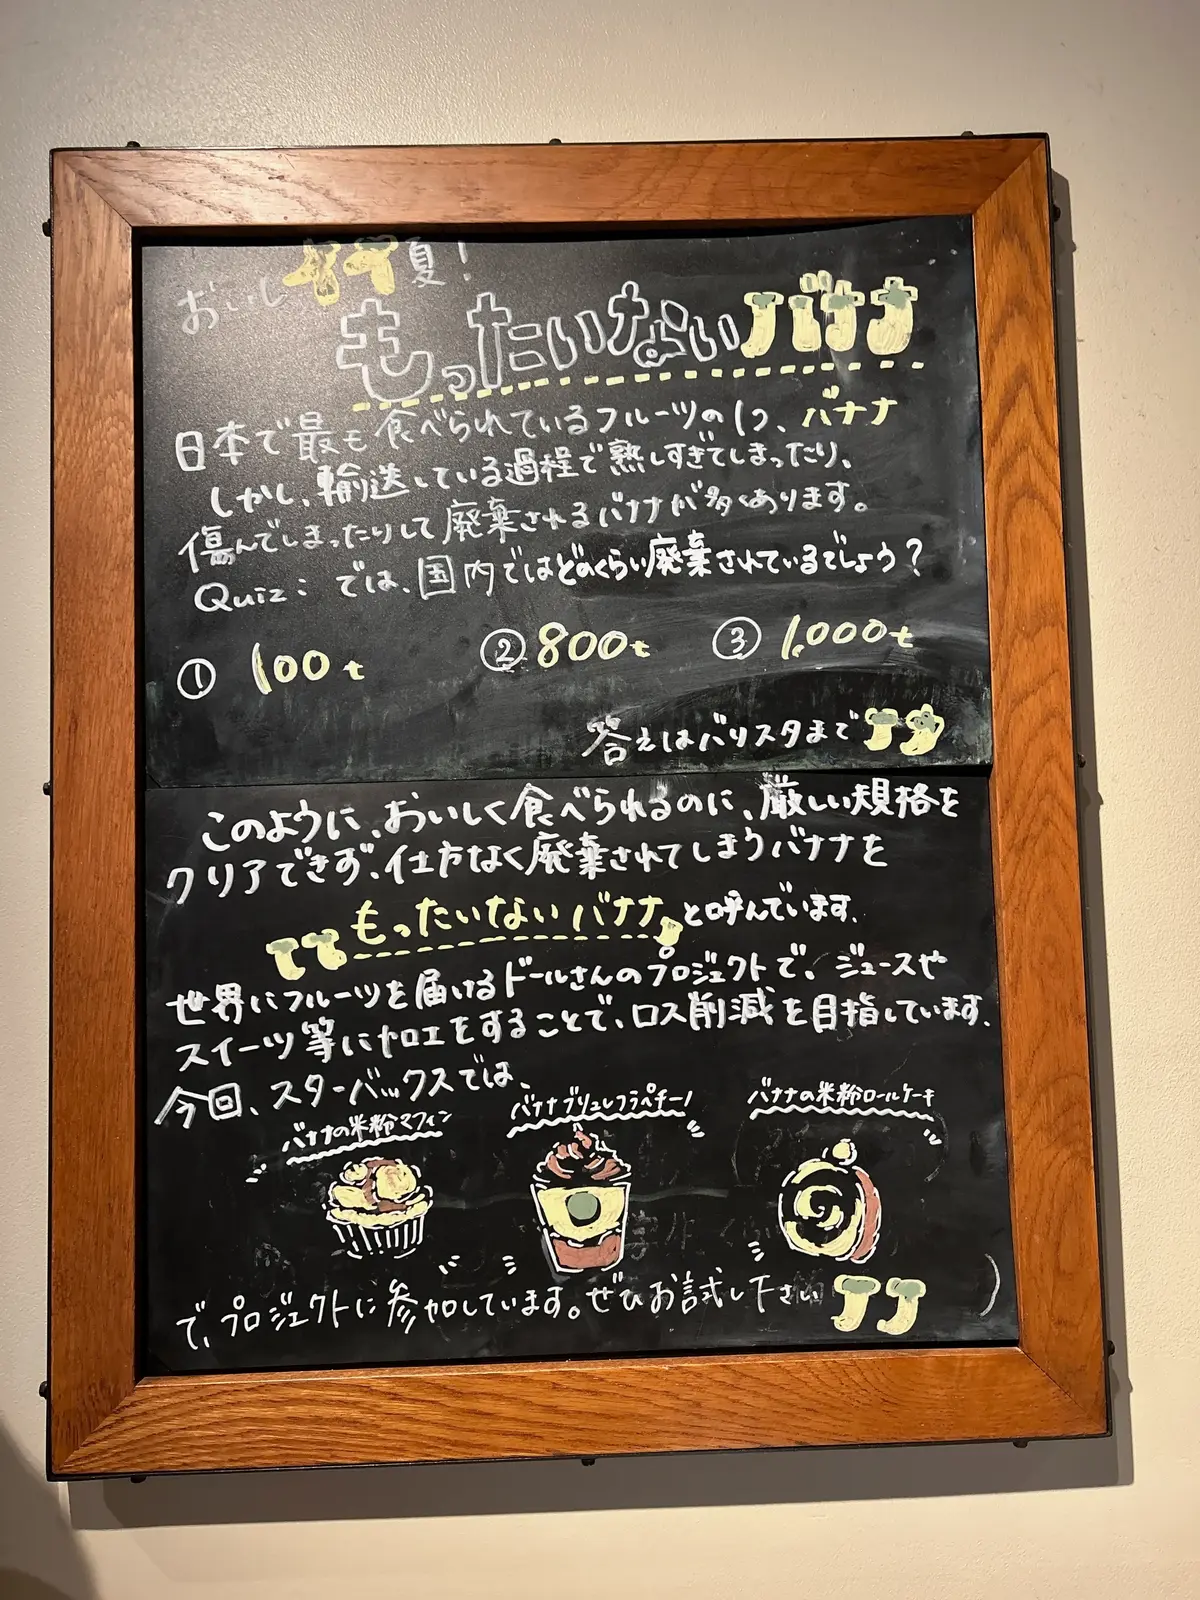 おいしイイ夏！
もったいないバナナ
日本で最も食べられているフルーツの1つ、バナナ
しかし、輸送している過程で熟しすぎてしまったり、
傷んでしまったりして廃棄されるバナナが多くあります。
Quiz: では、国内ではどのくらい廃棄されているでしょう？
① 100t ② 800t ③ 1,000t
答えはバリスタまで
このように、おいしく食べられるのに、厳しい規格を
クリアできず、仕方なく廃棄されてしまうバナナを
もったいないバナナ と呼んでいます。
世界にフルーツを届けるドールさんのプロジェクトで、ジュースや
スイーツ等に加工をすることで、ロス削減を目指しています。
今回、スターバックスでは、
バナナの米粉マフィン バナナブリュレフラペチーノ バナナの米粉ロールケーキ
で、プロジェクトに参加しています。ぜひお試し下さい